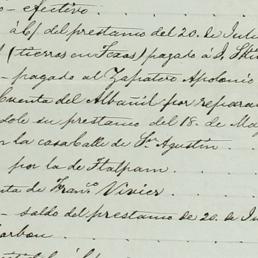 - efectivo.
á b/ del prestamo del 20. de Juli
(tierras en Texas) pagado á J. Sh
- pagado al Zapatero Apolonio
Cuenta del Albañil por repara
dole su prestamo del 18. de Ma
n la casa Calle de Sn Agustin.
por la de Tlalpam.
nta de Franco Vivier.
- saldo del prestamo de 20. de Ju
arbon